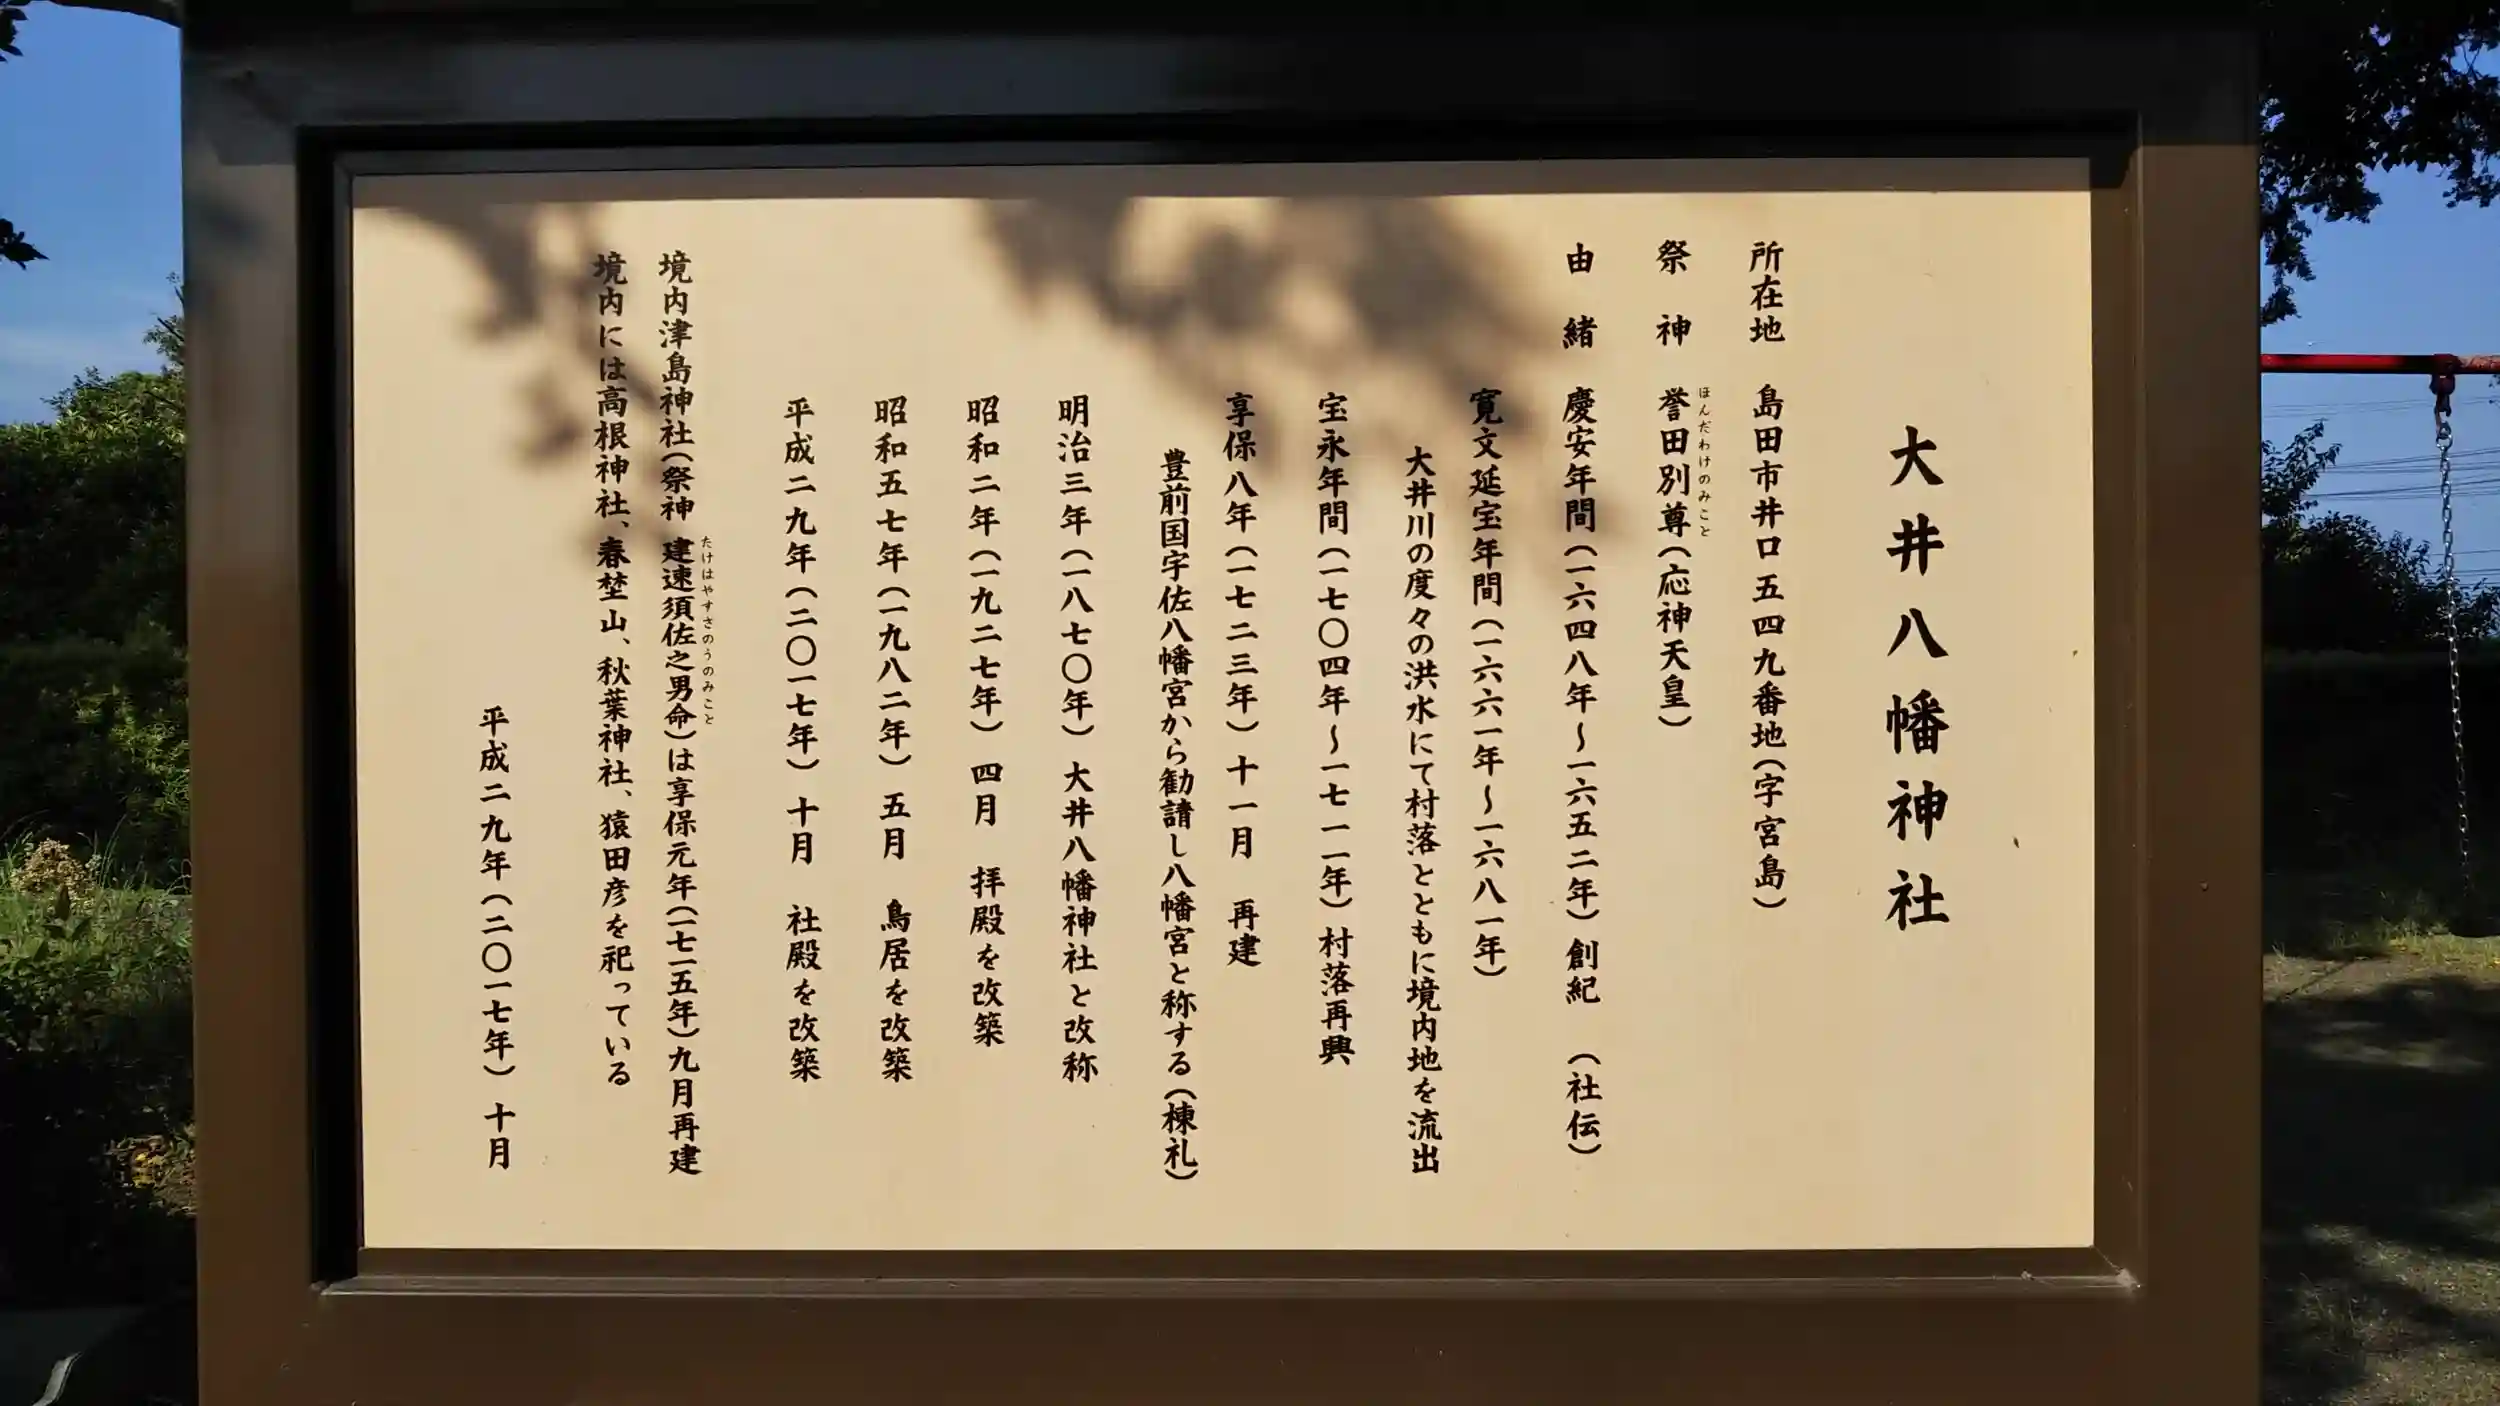 大井八幡神社
所在地 島田市井口五四九番地(字宮島)
祭神 誉田別尊(応神天皇)
ほんだわけのみこと
由緒 慶安年間(一六四八年~一六五二年)創紀 (社伝)
寛文延宝年間(一六六一年~一六八一年)
大井川の度々の洪水にて村落とともに境内地を流出
宝永年間(一七〇四年~一七一一年)村落再興
享保八年(一七二三年)十一月 再建
豊前国宇佐八幡宮から勧請し八幡宮と称する(棟礼)
明治三年(一八七〇年) 大井八幡神社と改称
昭和二年(一九二七年) 四月 拝殿を改築
昭和五七年(一九八二年) 五月 鳥居を改築
平成二九年(二〇一七年) 十月 社殿を改築
境内津島神社(祭神 建速須佐之男命)は享保元年(一七一五年)九月再建
たけはやすさのうのみこと
境内には高根神社、春埜山、秋葉神社、猿田彦を祀っている
平成二九年(二〇一七年) 十月